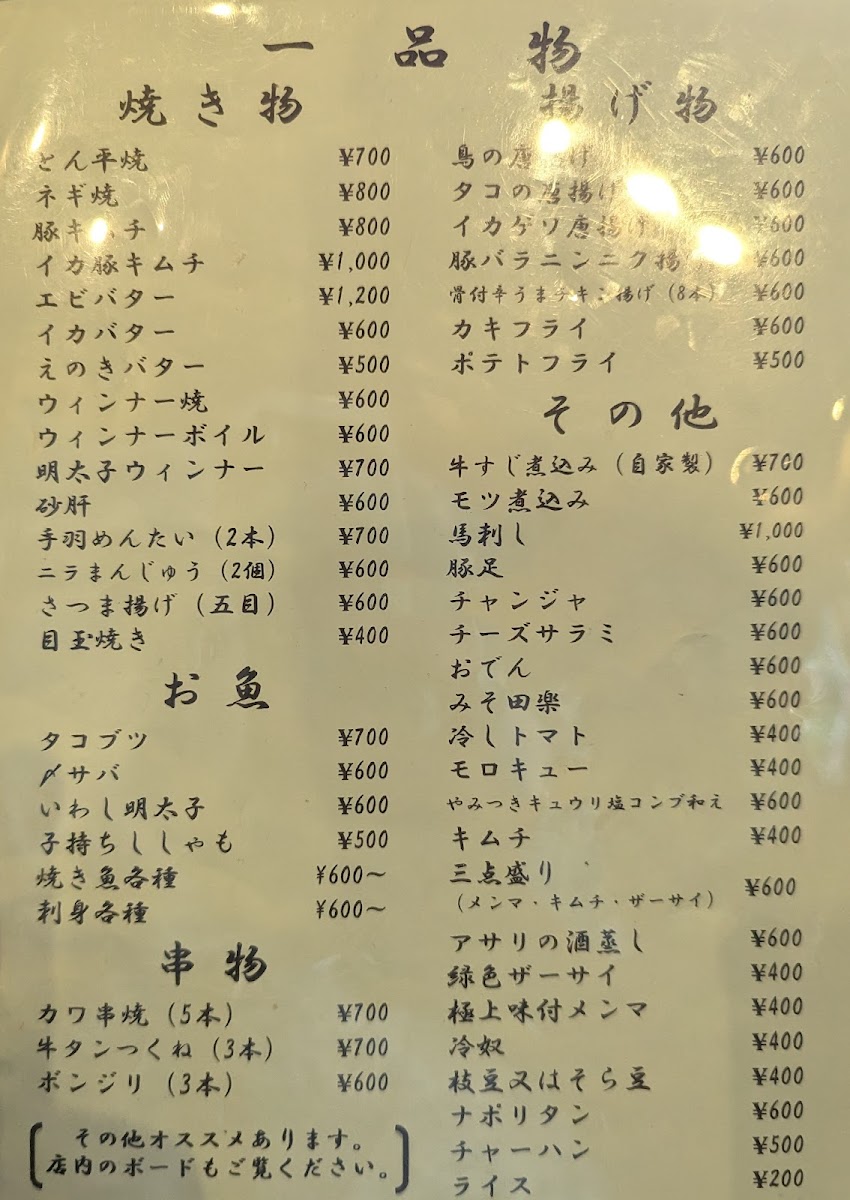 一品物
焼き物
とん平焼 ¥700
ネギ焼 ¥800
豚キムチ ¥800
イカ豚キムチ ¥1,000
エビバター ¥1,200
イカバター ¥600
えのきバター ¥500
ウィンナー焼 ¥600
ウィンナーボイル ¥600
明太子ウィンナー ¥700
砂肝 ¥600
手羽めんたい（2本） ¥700
ニラまんじゅう（2個） ¥600
さつま揚げ（五目） ¥600
目玉焼き ¥400
お魚
タコブツ ¥700
〆サバ ¥600
いわし明太子 ¥600
子持ちししゃも ¥500
焼き魚各種 ¥600〜
刺身各種 ¥600〜
串物
カワ串焼（5本） ¥700
牛タンつくね（3本） ¥700
ボンジリ（3本） ¥600
その他オススメあります。
店内のボードもご覧ください。
揚げ物
鳥の唐揚げ ¥600
タコの唐揚げ ¥600
イカゲソ唐揚げ ¥600
豚バラニンニク揚 ¥600
骨付辛うまチキン揚げ（8本） ¥600
カキフライ ¥600
ポテトフライ ¥500
その他
牛すじ煮込み（自家製） ¥700
モツ煮込み ¥600
馬刺し ¥1,000
豚足 ¥600
チャンジャ ¥600
チーズサラミ ¥600
おでん ¥600
みそ田楽 ¥600
冷しトマト ¥400
モロキュー ¥400
やみつきキュウリ塩コンブ和え ¥600
キムチ ¥400
三点盛り ¥600
（メンマ・キムチ・ザーサイ）
アサリの酒蒸し ¥600
緑色ザーサイ ¥400
極上味付メンマ ¥400
冷奴 ¥400
枝豆又はそら豆 ¥400
ナポリタン ¥600
チャーハン ¥500
ライス ¥200